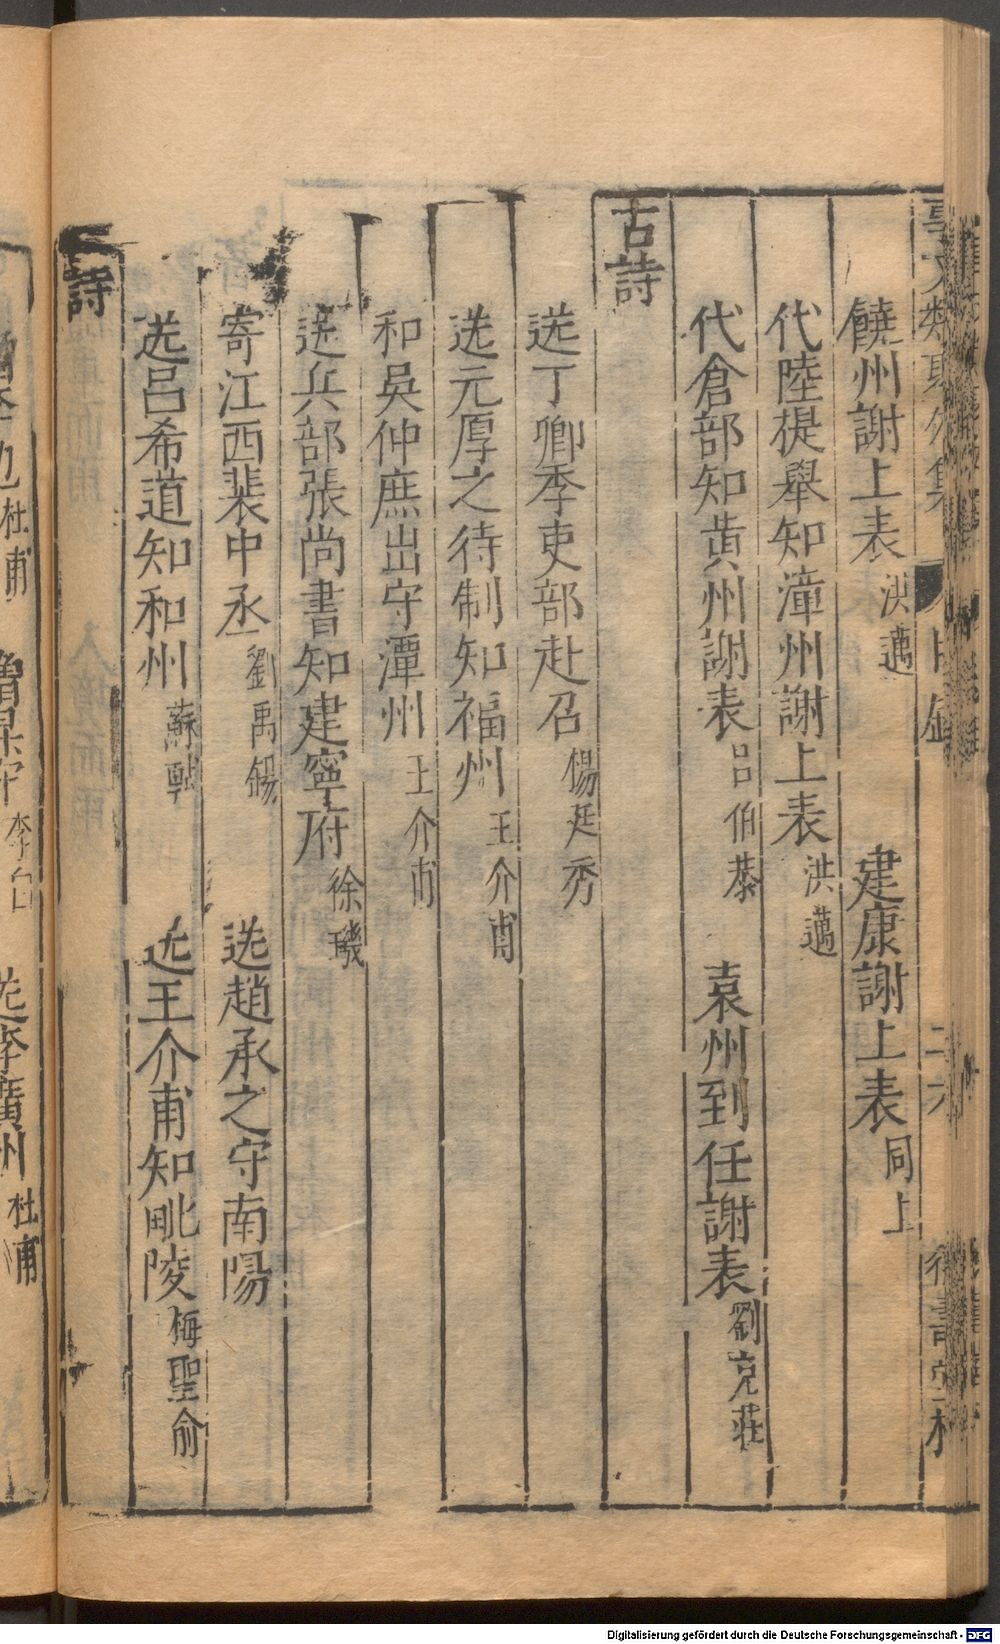 事文類聚外集　目錄　二六　德壽堂梓
饒州謝上表 洪邁　建康謝上表 同上
代陸提舉知漳州謝上表 洪邁
代倉部知黃州謝表 吕伯恭　袁州到任謝表 劉克莊
古詩
送丁卿季吏部赴召 楊廷秀
送元厚之待制知福州 王介甫
和吳仲庶出守潭州 王介甫
送兵部張尚書知建寧府 徐璣
寄江西裴中丞 劉禹錫　送趙承之守南陽
送吕希道知和州 蘇軾　送王介甫知毗陵 梅聖俞
詩
杜甫　李白　送李廣州 杜甫
Digitalisierung gefördert durch die Deutsche Forschungsgemeinschaft - DFG